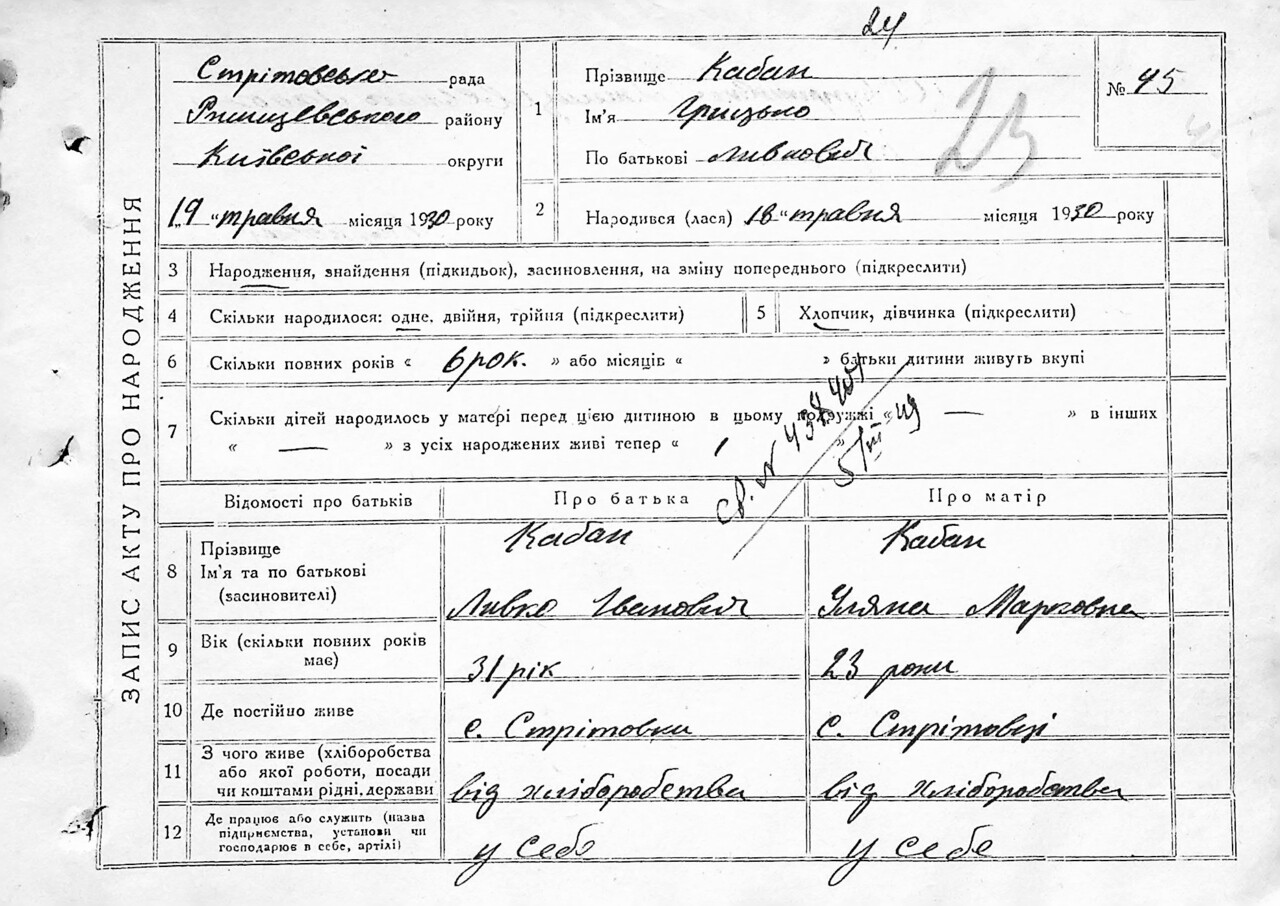 24
ЗАПИС АКТУ ПРО НАРОДЖЕННЯ
Стрітовська рада
Ржищевського району
Київської округи
„19 “ травня місяця 1930 року
1 Прізвище Кабан
Ім'я Грицько
По батькові Ливкович
23
№ 45
2 Народився (лася) 18 “ травня місяця 1930 року
3 Народження, знайдення (підкидьок), засиновлення, на зміну попереднього (підкреслити)
4 Скільки народилося: одне, двійня, трійня (підкреслити)
5 Хлопчик, дівчинка (підкреслити)
6 Скільки повних років « 6 рок. » або місяців « » батьки дитини живуть вкупі
7 Скільки дітей народилось у матері перед цією дитиною в цьому подружжі « — » в інших
« — » з усіх народжених живі тепер « »
св. N
5/III 49
Відомості про батьків Про батька Про матір
8 Прізвище
Ім'я та по батькові
(засиновителі)
Кабан
Ливко Іванович
Кабан
Уляна Марковна
9 Вік (скільки повних років
має)
31 рік
23 роки
10 Де постійно живе
с. Стрітовки
с. Стрітовці
11 З чого живе (хліборобства
або якої роботи, посади
чи коштами рідні, держави
від хліборобства
від хліборобства
12 Де працює або служить (назва
підприємства, установи чи
господарює в себе, артілі)
у себе
у себе